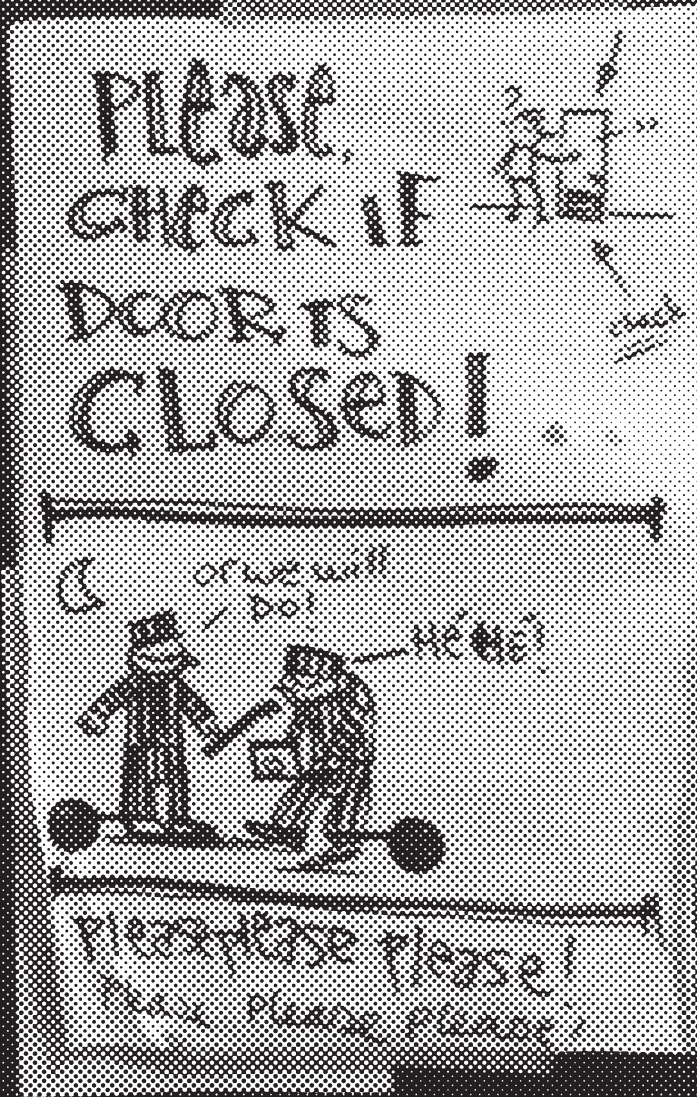 Please,
CHeCK IF
DOOR IS
CLOSeD!
or we will
DO!
HÉ HÉ!
please please please!
please please please!